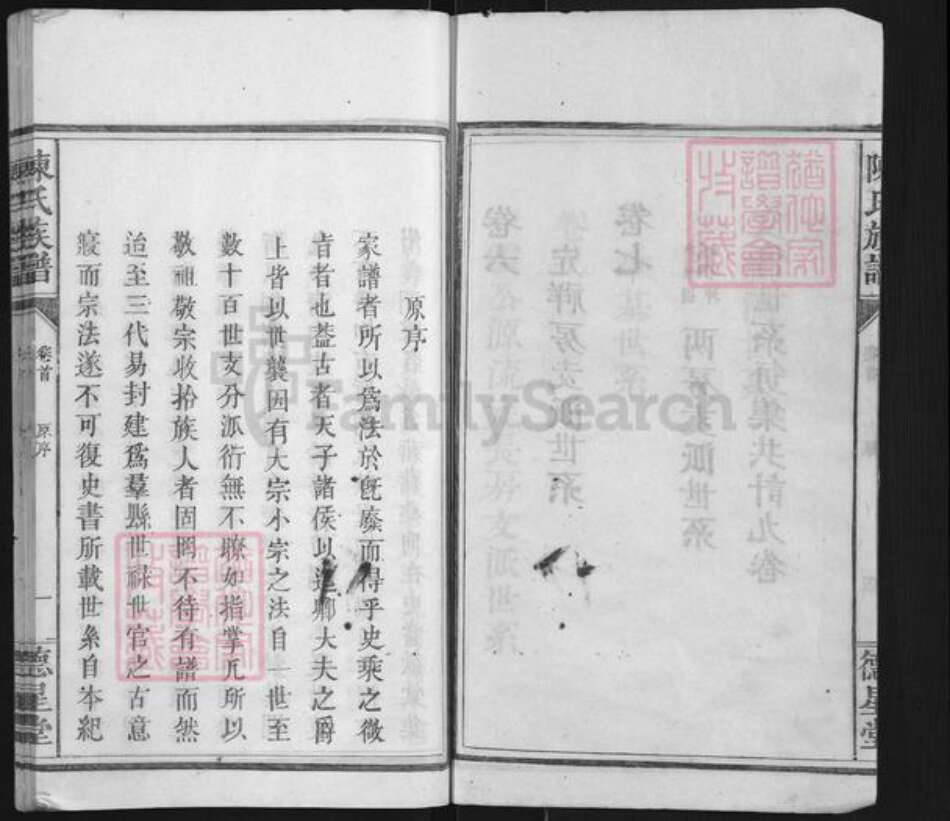 陳氏族譜
德星堂
原序
家譜者所以為法於旣廢而得乎史乘之微
者也葢古者天子諸侯以逮卿大夫之爵
上皆以世襲因有大宗小宗之法自一世至
數十百世支分派衍無不瞭如指掌凡所以
敬祖敬宗收拾族人者固罔不待有譜而然
迨至三代易封建為羣縣世祿世官之古意
寖而宗法遂不可復史書所載世系自本紀
陳氏族譜
卷首
原序
一
德星堂
FamilySearch